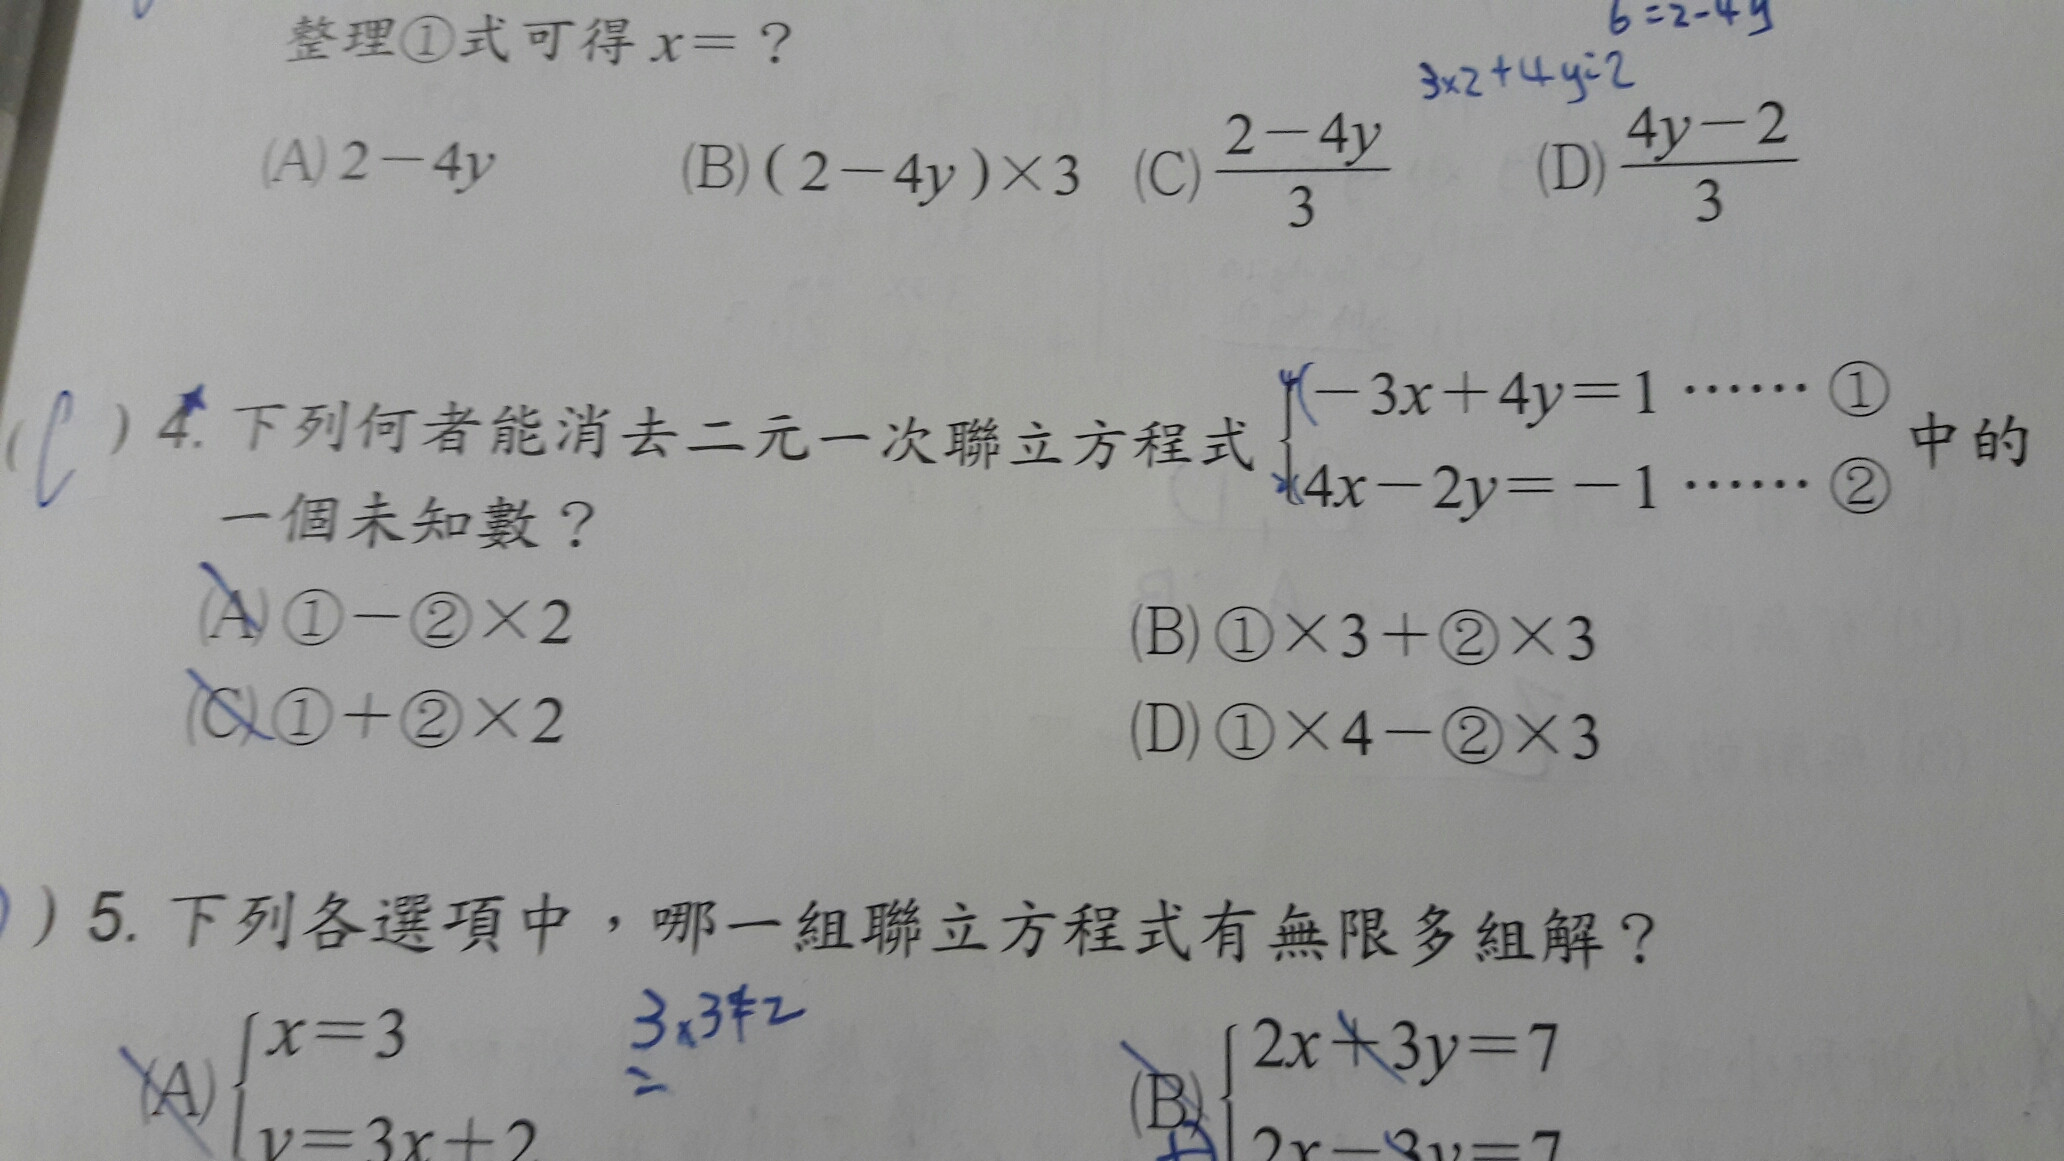 整理①式可得 x=？
6=2-4y
3×2+4y=2
(A) 2-4y (B) (2-4y)×3 (C) \frac{2-4y}{3} (D) \frac{4y-2}{3}
(C) 4. 下列何者能消去二元一次聯立方程式 { -3x+4y=1 …… ①
4x-2y=-1 …… ② 中的
一個未知數？
(A) ①-②×2 (B) ①×3+②×3
(C) ①+②×2 (D) ①×4-②×3
) 5. 下列各選項中，哪一組聯立方程式有無限多組解？
3×3+2
=
(A) { x=3 (B) { 2x+3y=7
y=3x+2 2x-3y=7